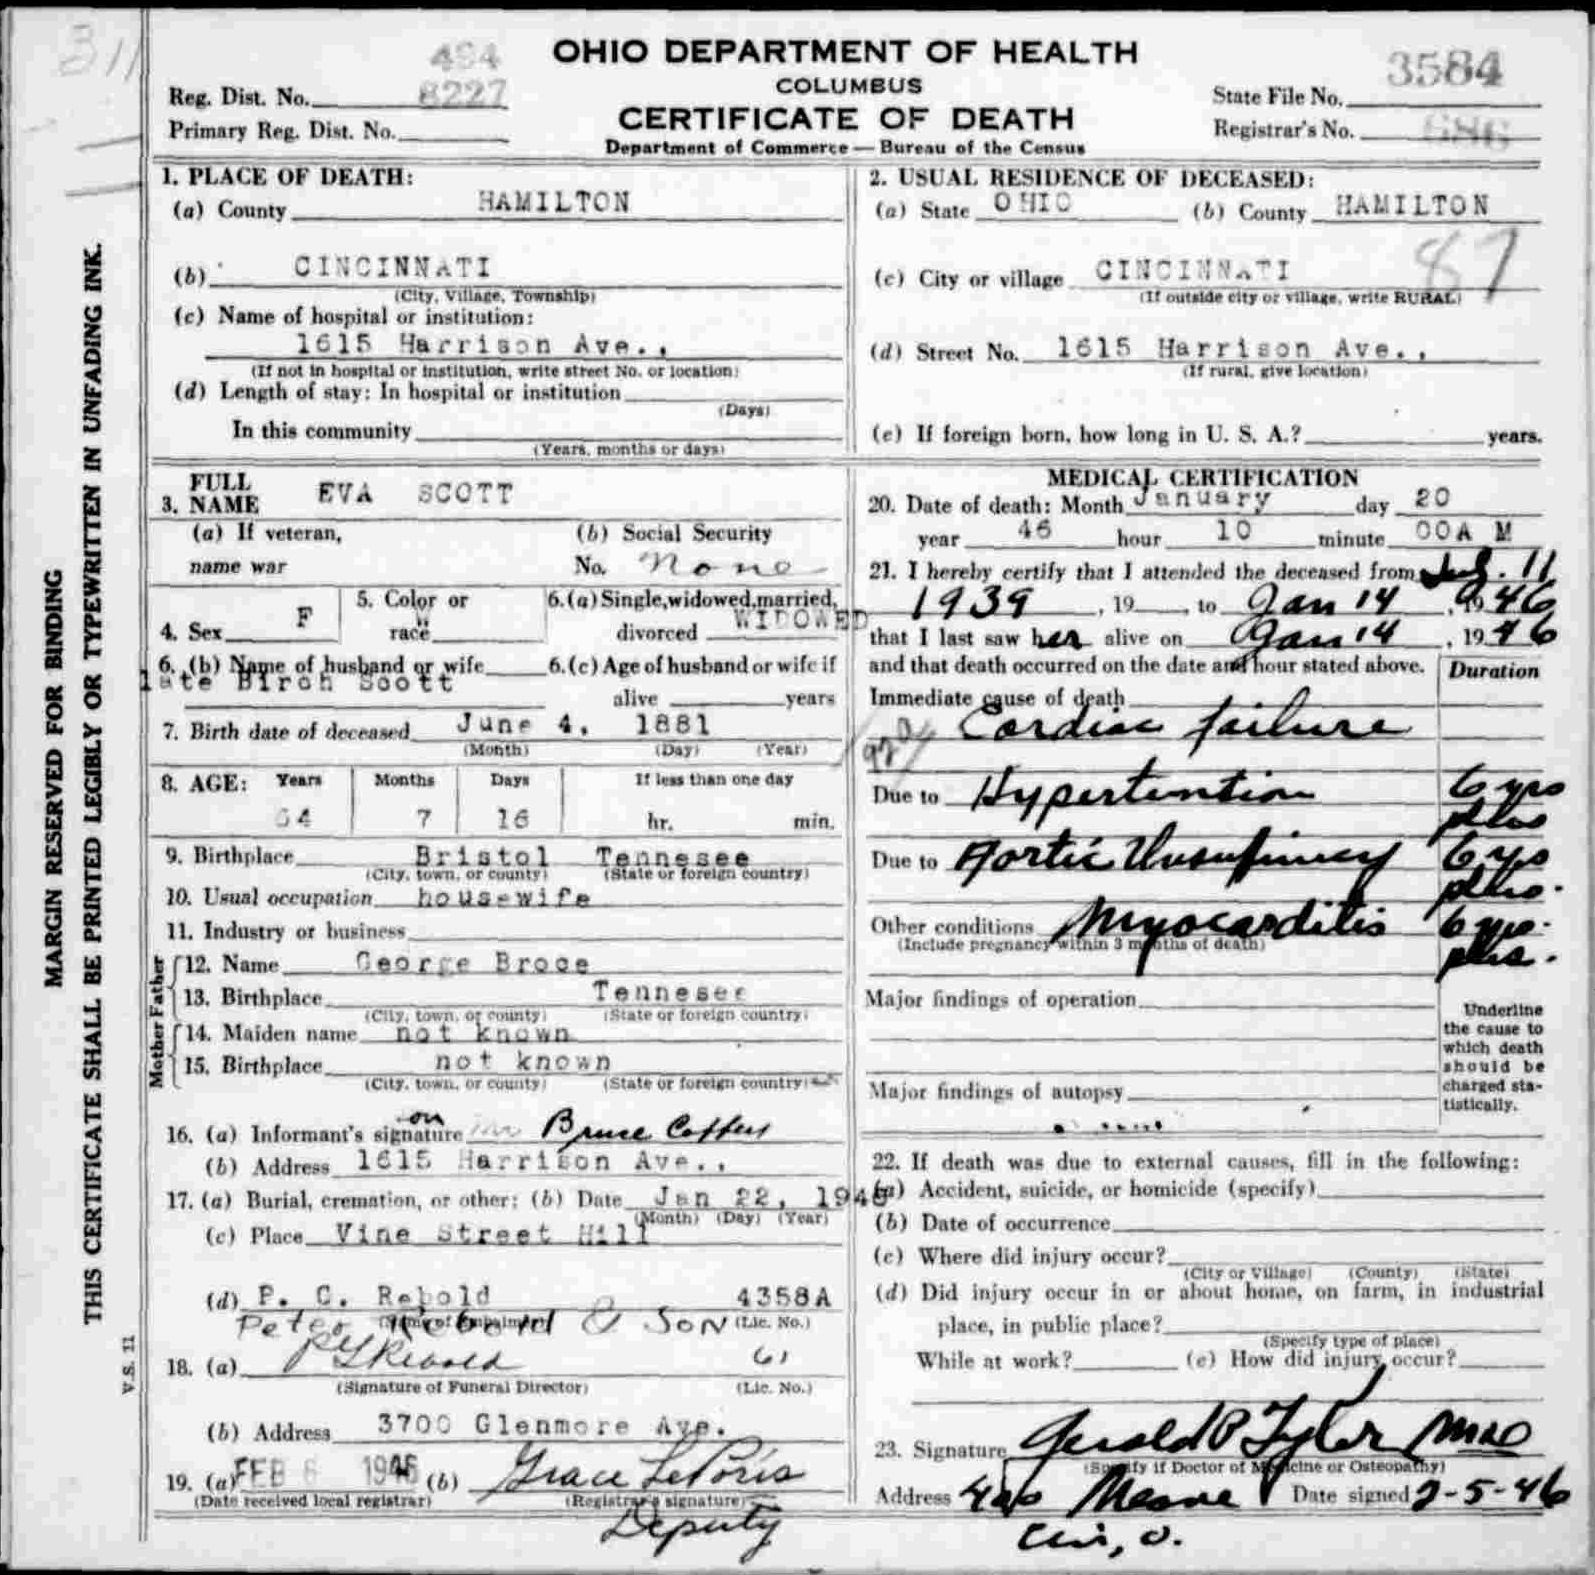 311
OHIO DEPARTMENT OF HEALTH
COLUMBUS
CERTIFICATE OF DEATH
Department of Commerce — Bureau of the Census
494
Reg. Dist. No. 8227
Primary Reg. Dist. No.
3584
State File No.
Registrar's No. 686
MARGIN RESERVED FOR BINDING
THIS CERTIFICATE SHALL BE PRINTED LEGIBLY OR TYPEWRITTEN IN UNFADING INK.
V.S. 11
1. PLACE OF DEATH:
(a) County HAMILTON
(b) CINCINNATI
(City, Village, Township)
(c) Name of hospital or institution:
1615 Harrison Ave.,
(If not in hospital or institution, write street No. or location)
(d) Length of stay: In hospital or institution
(Days)
In this community
(Years, months or days)
2. USUAL RESIDENCE OF DECEASED:
(a) State OHIO (b) County HAMILTON
87
(c) City or village CINCINNATI
(If outside city or village, write RURAL)
(d) Street No. 1615 Harrison Ave.,
(If rural, give location)
(e) If foreign born, how long in U. S. A.? years.
3. FULL NAME EVA SCOTT
(a) If veteran, name war
(b) Social Security No. None
4. Sex F
5. Color or race W
6. (a) Single, widowed, married, divorced WIDOWED
6. (b) Name of husband or wife
late Birch Scott
6. (c) Age of husband or wife if alive years
7. Birth date of deceased June 4, 1881
(Month) (Day) (Year)
8. AGE: Years Months Days If less than one day
64 7 16 hr. min.
9. Birthplace Bristol Tennesee
(City, town, or county) (State or foreign country)
10. Usual occupation housewife
11. Industry or business
Father
12. Name George Broce
13. Birthplace Tennesee
(City, town, or county) (State or foreign country)
Mother
14. Maiden name not known
15. Birthplace not known
(City, town, or county) (State or foreign country)
on
16. (a) Informant's signature Bruce
(b) Address 1615 Harrison Ave.,
17. (a) Burial, cremation, or other: (b) Date Jan 22, 1946
(Month) (Day) (Year)
(c) Place Vine Street Hill
(d) P. C. Rebold 4358A
(Name of Embalmer) (Lic. No.)
Peter Rebold & Son
18. (a) Rebold 61
(Signature of Funeral Director) (Lic. No.)
(b) Address 3700 Glenmore Ave.
19. (a) FEB 6 1946 (b) Grace LeParis
(Date received local registrar) (Registrar's signature)
Deputy
MEDICAL CERTIFICATION
20. Date of death: Month January day 20
year 46 hour 10 minute 00A M
21. I hereby certify that I attended the deceased from 11
1939, 19 , to Jan 14, 1946
that I last saw her alive on Jan 14, 1946
and that death occurred on the date and hour stated above.
Duration
Immediate cause of death
Cardiac failure
Due to Hypertention 6 yrs plus
Due to Aortic Insufficiency 6 yrs plus.
Other conditions Myocarditis 6 yrs. plus.
(Include pregnancy within 3 months of death)
Major findings of operation
Major findings of autopsy
Underline the cause to which death should be charged statistically.
22. If death was due to external causes, fill in the following:
(a) Accident, suicide, or homicide (specify)
(b) Date of occurrence
(c) Where did injury occur?
(City or Village) (County) (State)
(d) Did injury occur in or about home, on farm, in industrial
place, in public place?
(Specify type of place)
While at work? (e) How did injury occur?
23. Signature Gerald P Tyler
(Specify if Doctor of Medicine or Osteopathy)
Address Date signed 2-5-46
Cin, O.